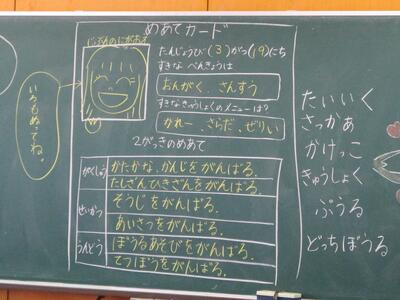 めあてカード
じぶんのにがおえ
いろもぬってね。
たんじょうび(3)がつ(19)にち
すきな べんきょうは
おんがく、さんすう
すきなきゅうしょくのメニューは?
かれー、さらだ、ぜりい
2がっきのめあて
がくしゅう
かたかな、かんじをがんばる。
たしざんひきざんをがんばる。
せいかつ
そうじをがんばる。
あいさつをがんばる。
うんどう
ぼうるあそびをがんばる。
てつぼうをがんばる。
たいいく
さっかぁ
かけっこ
きゅうしょく
ぷうる
どっちぼうる